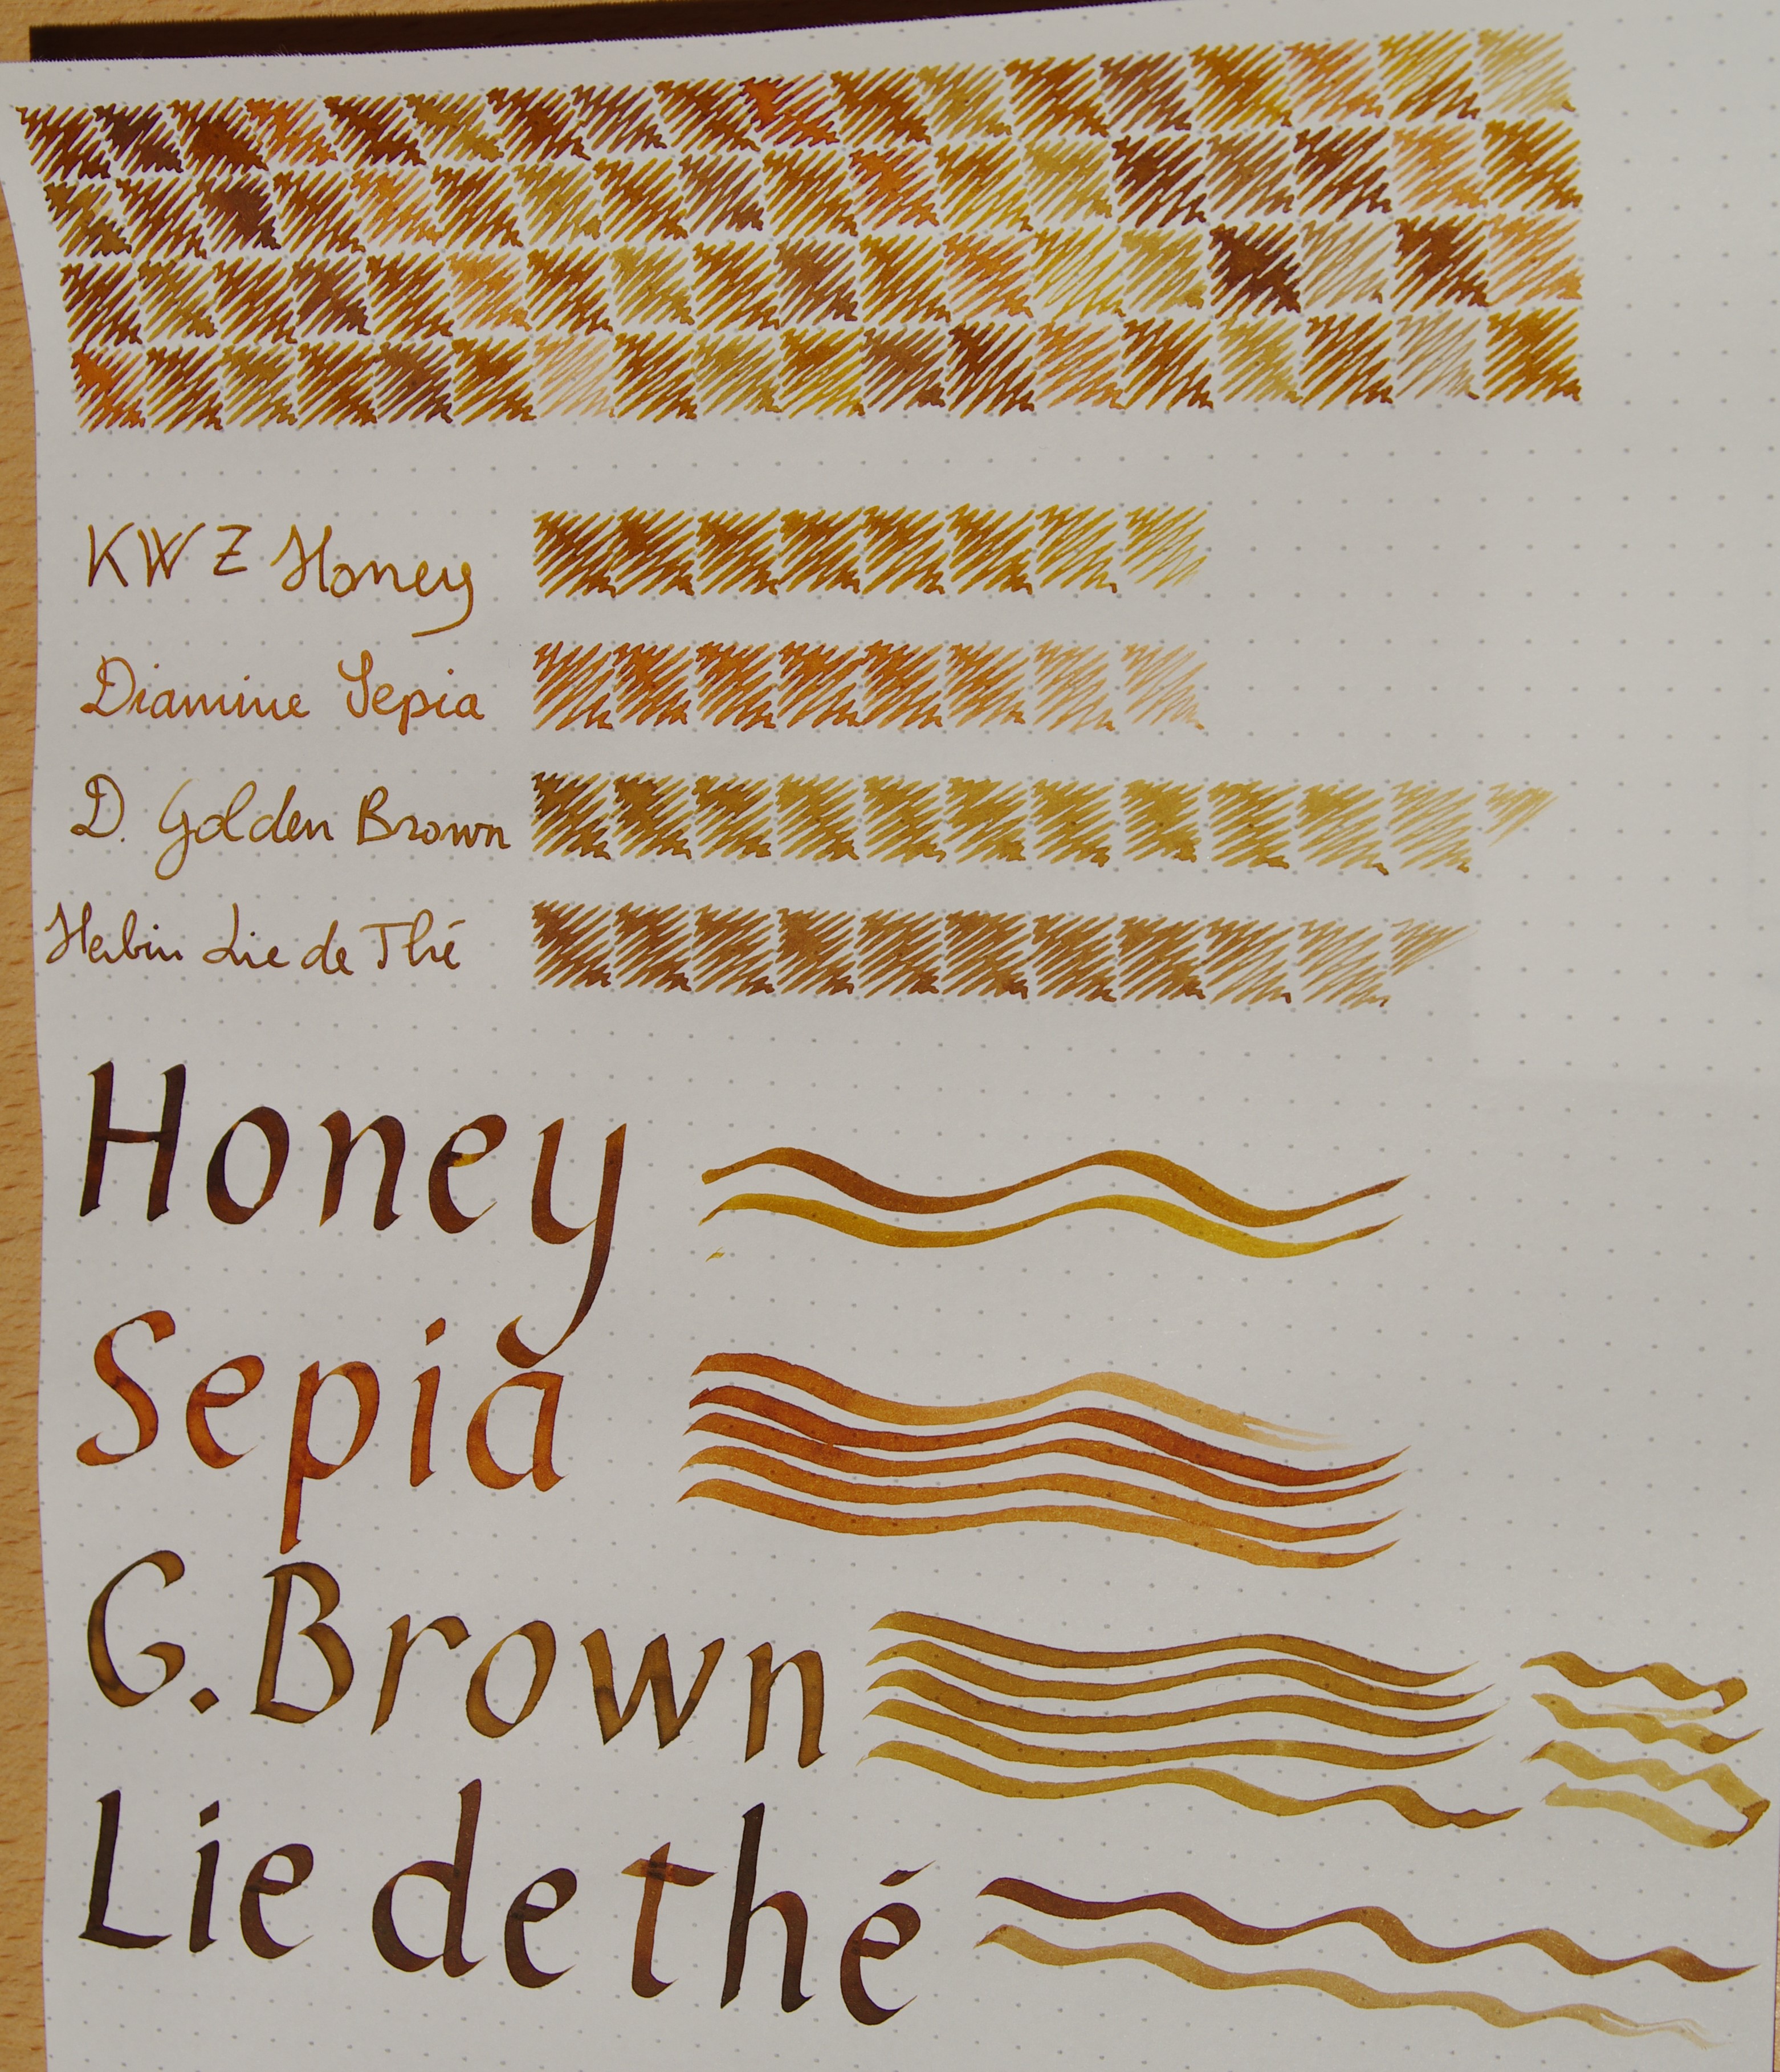 KWZ Honey
Diamine Sepia
D. Golden Brown
Herbin Lie de Thé
Honey
Sepia
G. Brown
Lie de thé